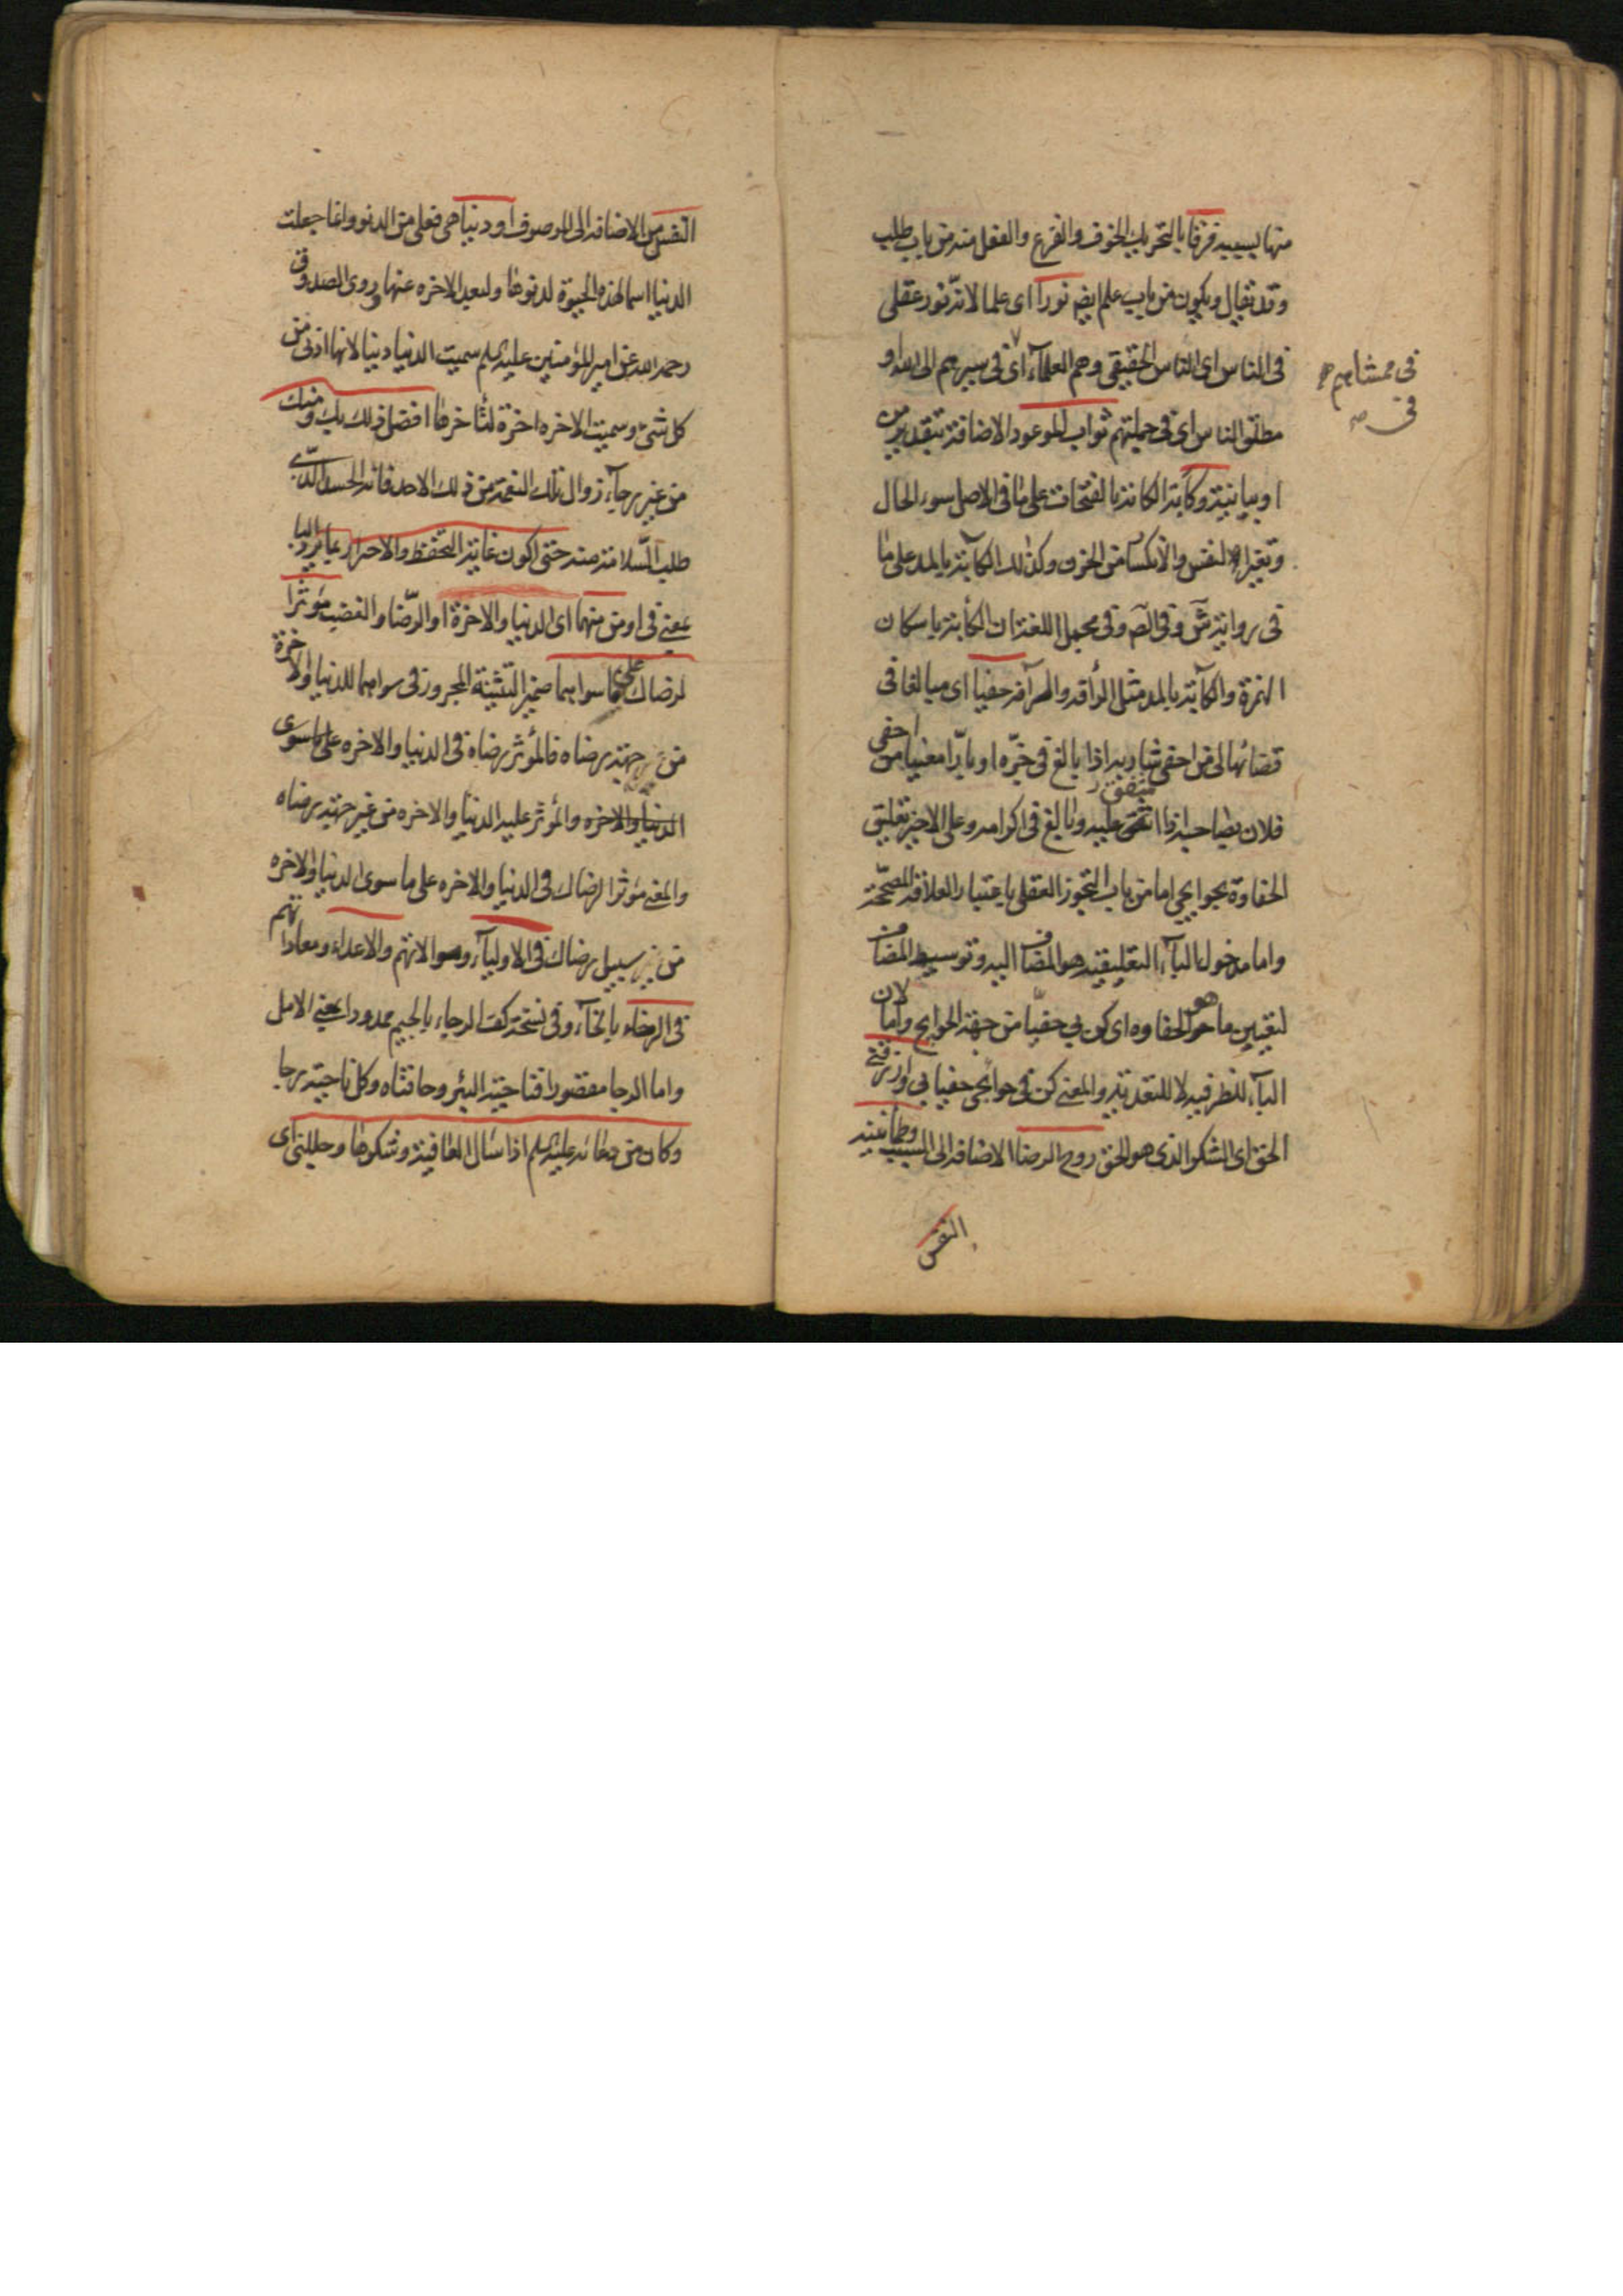 منها بسببه فرقا بالتحريك الخوف والفزع والفعل منه من باب طلب
وقد يقال ويكون من باب علم ايضا نورا اى علما لانه نور عقلى
فى الناس اى الناس الحقيقى وهم العلماء اى فى سيرهم الى الله او
فى ممشاهم
مطلق الناس اى فى جملتهم ثواب الموعود الاضافة بتقدير من
او بيانية وكآبة الكآبة بالفتحات على ما فى الاصل سوء الحال
وتغير النفس والانكسار من الحزن وكذلك الكآبة بالمد على ما
فى رواية ش وفى الص وفى مجمل اللغة ان الكأبة باسكان
الهمزة والكآبة بالمد مثل الرأفة والرآفة حفيا اى مبالغا فى
قضائها لى من احفى شاربه اذا بالغ فى جزه او بارا معنيا من احفى
فلان بصاحبه اذا اشفق عليه وبالغ فى اكرامه وعلى الاخير تعليق
الحفاوة بحوايجى اما من باب التجوز العقلى باعتبار العلاقة المصححة
واما مدخول الباء التعليقية هو المضاف اليه وتوسيط المضاف
لتعيين ما هو الحفاوه اى كن بي حفيا من جهة الحوايج واما لان
الباء للظرفيه لا للتعدية والمعنى كن فى حوايجى حفيا بى وارزقنى
الحق اى الشكر الذى هو الحق روح الرضا الاضافة الى السبب وطمانينه
النفس
النفس من الاضافه الى الموصوف او دنيا هى فعلى من الدنو وانما جعلت
الدنيا اسما لهذه الحيوة لدنوها ولبعد الاخره عنها وروى الصدوق
رحمه الله عن امير المؤمنين عليه السلم سميت الدنيا دنيا لانها ادنى من
كل شئ وسميت الاخره اخرة لتاخرها افضل ذلك بك ومنك
من غير رجاء زوال تلك النعمة من ذلك الاحد فانه الحسد الذى
طلب السلامة منه حتى اكون غاية التحفظ والاحتراز بما يرد الباء
بمعنى فى او من منهما اى الدنيا والاخرة او الرضا والغضب مؤثرا
لرضاك على ما سواهما ضمير التثنية المجرور فى سواهما للدنيا والاخرة
من جهة رضاه فالمؤثر رضاه فى الدنيا والاخره على ما سوى
الدنيا والاخره والمؤثر عليه الدنيا والاخره من غير جهة رضاه
والمعنى مؤثرا لرضاك فى الدنيا والاخره على ما سوى الدنيا والاخره
من غير سبيل رضاك فى الاولياء وموالاتهم والاعداء ومعاداتهم
فى الرخاء بالخاء وفى نسخة كف الرجاء بالجيم ممدودا بمعنى الامل
واما الرجا مقصورا فناحية البئر وحافتاه وكل ناحية رجا
وكان من دعائه عليه السلم اذا سأل العافية وشكرها وجللنى اى